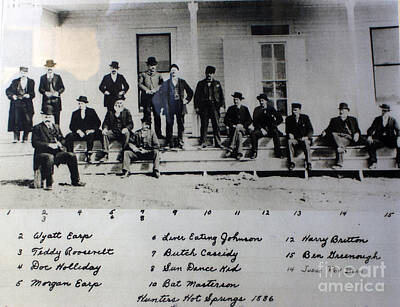 1 2 3 4 5 6 7 8 9 10 11 12 13 14 15
2 Wyatt Earp
3 Teddy Roosevelt
4 Doc Holliday
5 Morgan Earp
6 Liver Eating Johnson
7 Butch Cassidy
8 Sun Dance Kid
10 Bat Masterson
12 Harry Britton
15 Ben Greenough
14 Judge Roy Bean
Hunters Hot Springs 1886
fineart
america